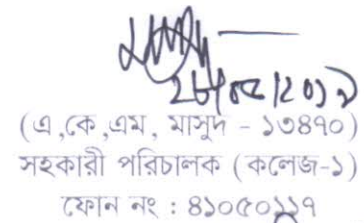 ২৮/০৫/২০১৯
(এ,কে,এম, মাসুদ - ১৩৪৭০)
সহকারী পরিচালক (কলেজ-১)
ফোন নং : ৪১০৫০১১৭